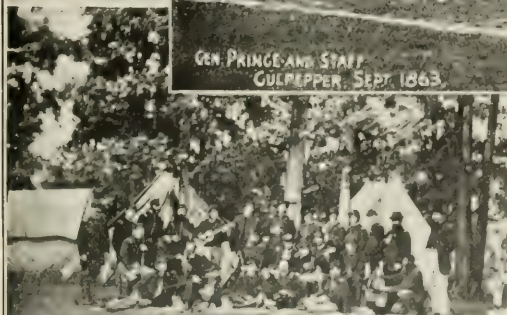 GEN. PRINCE AND STAFF
CULPEPPER, SEPT. 1863.